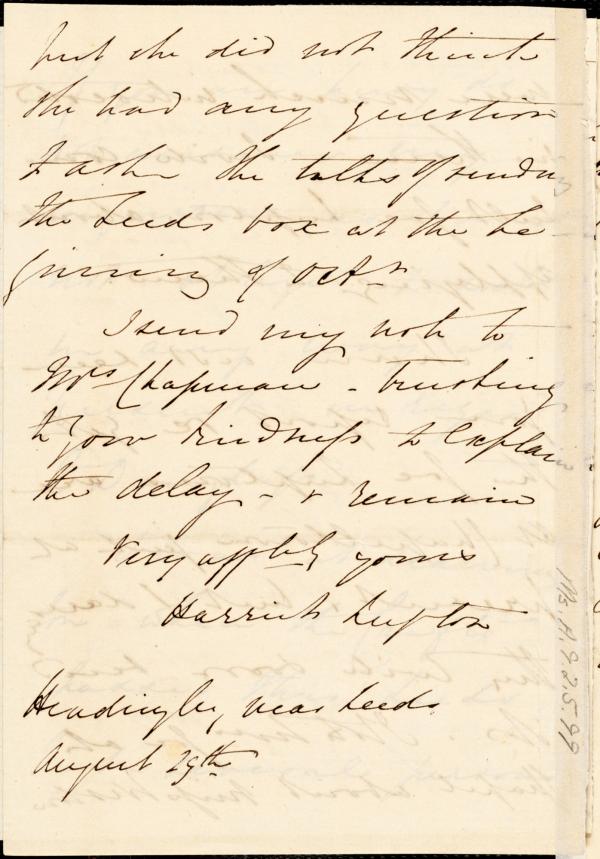 but she did not think
she had any question
to ask. She talks of sending
the Leeds box at the be-
ginning of Octr
I send my note to
Mrs Chapman - trusting
to your kindness to explain
the delay - & remain
Very affectly yours
Harriet Lupton
Headingley, near Leeds
August 29th
Ms. A. 9. 2. 5. 99